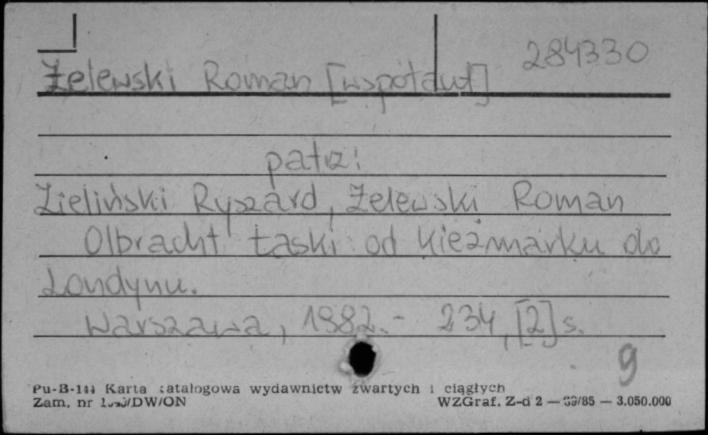 284330
Żelewski Roman [współaut]
patrz:
Zieliński Ryszard, Żelewski Roman
Olbracht Łaski: od Kieżmarku do
Londynu.
Warszawa, 1982.- 234, [2] s.
9
Pu-B-144 Karta katalogowa wydawnictw zwartych i ciągłych
Zam. nr /DW/ON WZGraf. Z-d 2 — /85 — 3.050.000